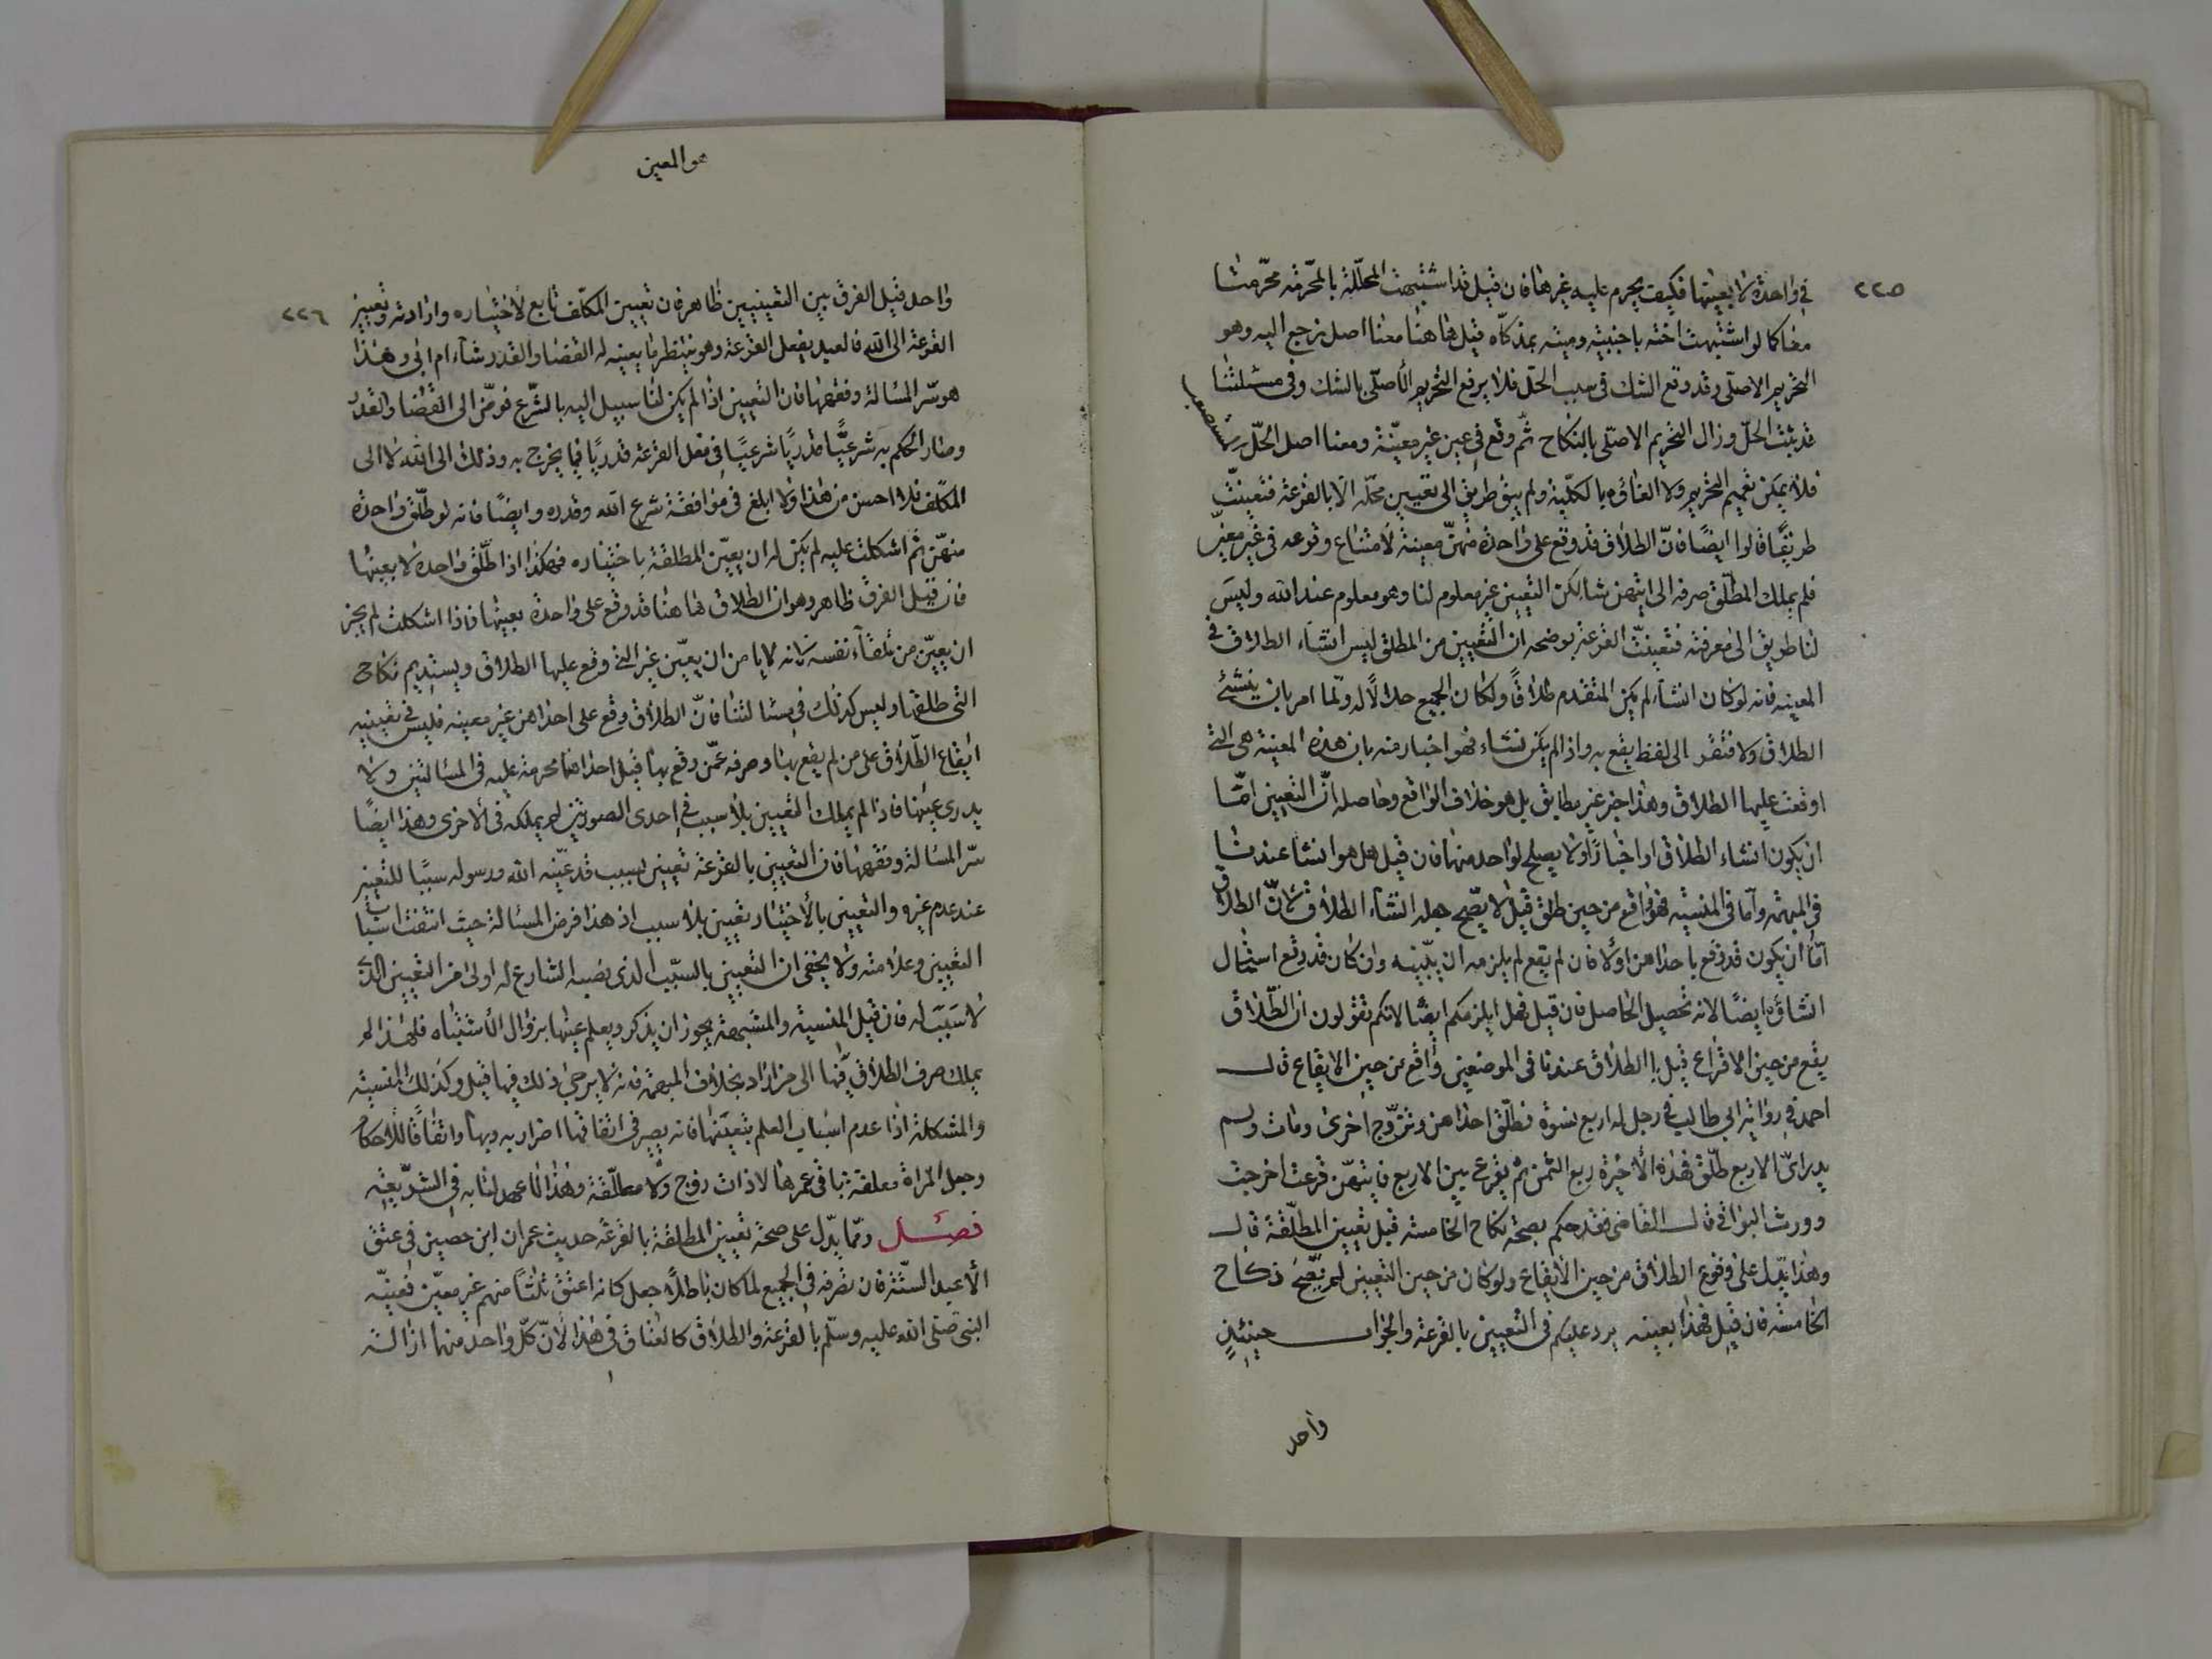 ٢٢٥
في واحدة لا بعينها فكيف يحرم عليه غيرها فان قيل قد اشتبهت المحلّلة بالمحرّمة محرّمتا
معا كما لو اشتبهت اخته باجنبية وميتة بمذكّاه قيل هاهنا معنا اصل نرجع اليه وهو
التحريم الاصلى وقد وقع الشك فى سبب الحل فلا يرفع التحريم الأصلى بالشك وفى مسئلتنا
قد ثبت الحلّ وزال التحريم الاصلى بالنكاح ثم وقع فى عين غير معيّنة ومعنا اصل الحلّ
فلا يمكن تعميم التحريم ولا الغاؤه بالكلّية ولم يبق طريق الى تعيين محلّه الا بالقرعة فتعينت
طريقًا قالوا ايضًا فانّ الطلاق قد وقع على واحدة منهنّ معينة لأمتناع وقوعه فى غير معيّن
فلم يملك المطلّق صرفه الى ايتهن شا لكن التعيين غير معلوم لنا وهو معلوم عند الله وليس
لنا طريق الى معرفته فتعينت القرعة يوضحه انّ التعيين من المطلق ليس انشاء الطلاق فى
المعينه فانه لو كان انشاء لم يكن المتقدم طلاقًا ولكان الجميع حلالًا له ولما امر بان ينشئ
الطلاق ولا فتقر الى لفظ يقع به واذ لم يكن انشاء فهو اخبار منه بان هذه المعينة هى التى
اوقعت عليها الطلاق وهذا خبر غير مطابق بل هو خلاف الواقع وحاصله انّ التعيين امّا
ان يكون انشاء الطلاق او اخبارًا ولا يصلح لواحد منهما فان قيل هل هو انشا عندنا
فى المبهمة وأما فى المنسية فهو واقع من حين طلق قيل لا يصح جعله انشاء الطلاق لانّ الطلاق
امّا ان يكون قد وقع باحداهن اولا فان لم يقع لم يلزمه ان يبيّنه وان كان قد وقع استحال
انشاؤه ايضًا لانه تحصيل الحاصل فان قيل فهل يلزمكم ايضًا لانكم تقولون ان الطّلاق
يقع من حين الاقراع قيل بل الطلاق عندنا فى الموضعين واقع من حين الايقاع قال
احمد فى رواية ابى طالب فى رجل له اربع نسوة فطلّق احداهن وتزوّج اخرى ومات ولم
يدر اىّ الاربع طلّق فلهذه الأخيرة ربع الثمن ثم يقرع بين الاربع فايتهنّ قرعت اخرجت
وورث البواقى قال القاضى فقد حكم بصحة نكاح الخامسة قبل تعيين المطلّقة قال
وهذا يدّل على وقوع الطلاق من حين الأيقاع ولو كان من حين التعيين لم يصحّ نكاح
الخامسة فان قيل فهذا بعينه يرد عليكم فى التعيين بالقرعة والجواب حينئذٍ
واحد
هو المعين
٢٢٦
واحد قيل الفرق بين التعيينين ظاهر فان تعيين المكلّف تابع لاختياره وارادته وتعيين
القرعة الى الله فالعبد يفعل القرعة وهو ينتظر ما يعينه له القضا والقدر شاء ام ابى وهذا
هو سّر المسالة وفقهها فان التعيين اذا لم يكن لنا سبيل اليه بالشرع فوّض الى القضا والقدر
وصار الحكم به شرعيًّا قدريًا شرعيًا فى فعل القرعة قدريًا فيما يخرج به وذلك الى الله لا الى
المكلف فلا احسن من هذا ولا ابلغ فى موافقة شرع الله وقدره وايضًا فانه لو طلّق واحدة
منهنّ ثم اشكلت عليه لم يكن له ان يعيّن المطلقة باختياره فهكذا اذا طلّق واحدة لا بعينها
فان قيل الفرق ظاهر وهو ان الطلاق هاهنا قد وقع على واحدة بعينها فاذا اشكلت لم يجز
ان يعيّن من تلقاء نفسه لانه لا يامن ان يعيّن غير التى وقع عليها الطلاق ويستديم نكاح
التى طلقها وليس كذلك فى مسالتنا فانّ الطلاق وقع على احداهن غير معينه فليس فى تعيينه
ايقاع الطّلاق على من لم يقع بها وصرفه عمّن وقع بها قيل احداهما محرمة عليه فى المسالتين ولا
يدرى عينها فاذا لم يملك التعيين بلا سبب فى احدى الصورتين لم يملكه فى الأخرى وهذا ايضًا
سّر المسالة وفقهها فان التعيين بالقرعة تعيين بسبب قد عيّنه الله ورسوله سببًا للتعيين
عند عدم غيره والتعيين بالأختيار تعيين بلا سبب اذ هذا فرض المسالة حيث انتفت اسباب
التعيين وعلامته ولا يخفى ان التعيين بالسبب الذى نصبه الشارع له اولى من التعيين الذى
لا سبب له فان قيل المنسية والمشبهة يجوز ان يذكر ويعلم عينها بزوال الأشتباه فلهذا لم
يملك صرف الطلاق فيها الى من اراد بخلاف المبهمة فانه لا يرجى ذلك فيها قيل وكذلك المنسية
والمشكلة اذا عدم اسباب العلم بتعيّنها فانه يصير فى ابقائها اضرار به وبها وابقافًا للاحكام
وجعل المراة معلقة باقى عمرها لا ذات زوج ولا مطلّقة وهذا لا عهد لنا به فى الشريعة
فصل وممّا يدّل على صحة تعيين المطلقة بالقرعة حديث عمران ابن حصين فى عتق
الأعبد الستّة فان تصرفه فى الجميع لما كان باطلًا جعل كانه اعتق ثلثًا منهم غير معيّن فعينه
النبى صلى الله عليه وسلّم بالقرعة والطلاق كالعتاق فى هذا لأنّ كلّ واحد منهما ازالة